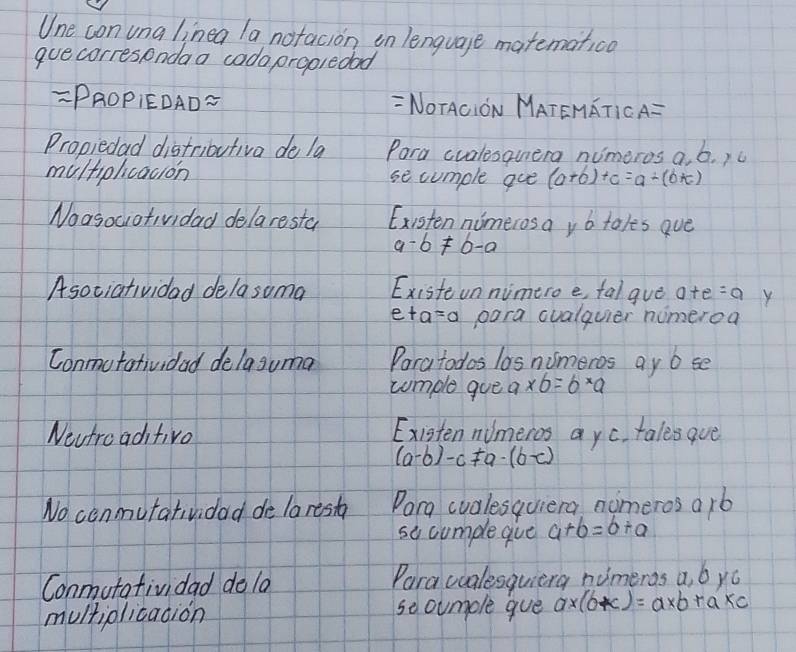 Une con una linea la notación en lenguaje matematico
que corresponda a cada propiedad
≈PROPIEDAD≈
=NOTACIÓN MATEMÁTICA=
Propiedad distributiva de la
multiplicación
Para cualesquiera números a, b, y c
se cumple que (a+b)+c=a+(b+c)
No asociatividad de la resta
Existen números a y b tales que
a-b≠b-a
Asociatividad de la suma
Existe un número e, tal que a+e=a y
e+a=a para cualquier número a
Conmutatividad de la suma
Para todos los números a y b se
cumple que a×b=b×a
Neutro aditivo
Existen números a y c, tales que
(a-b)-c≠a-(b-c)
No conmutatividad de la resta
Para cualesquiera números a y b
se cumple que a+b=b+a
Conmutatividad de la
multiplicación
Para cualesquiera números a, b y c
se cumple que a×(b+c)=a×b+a×c